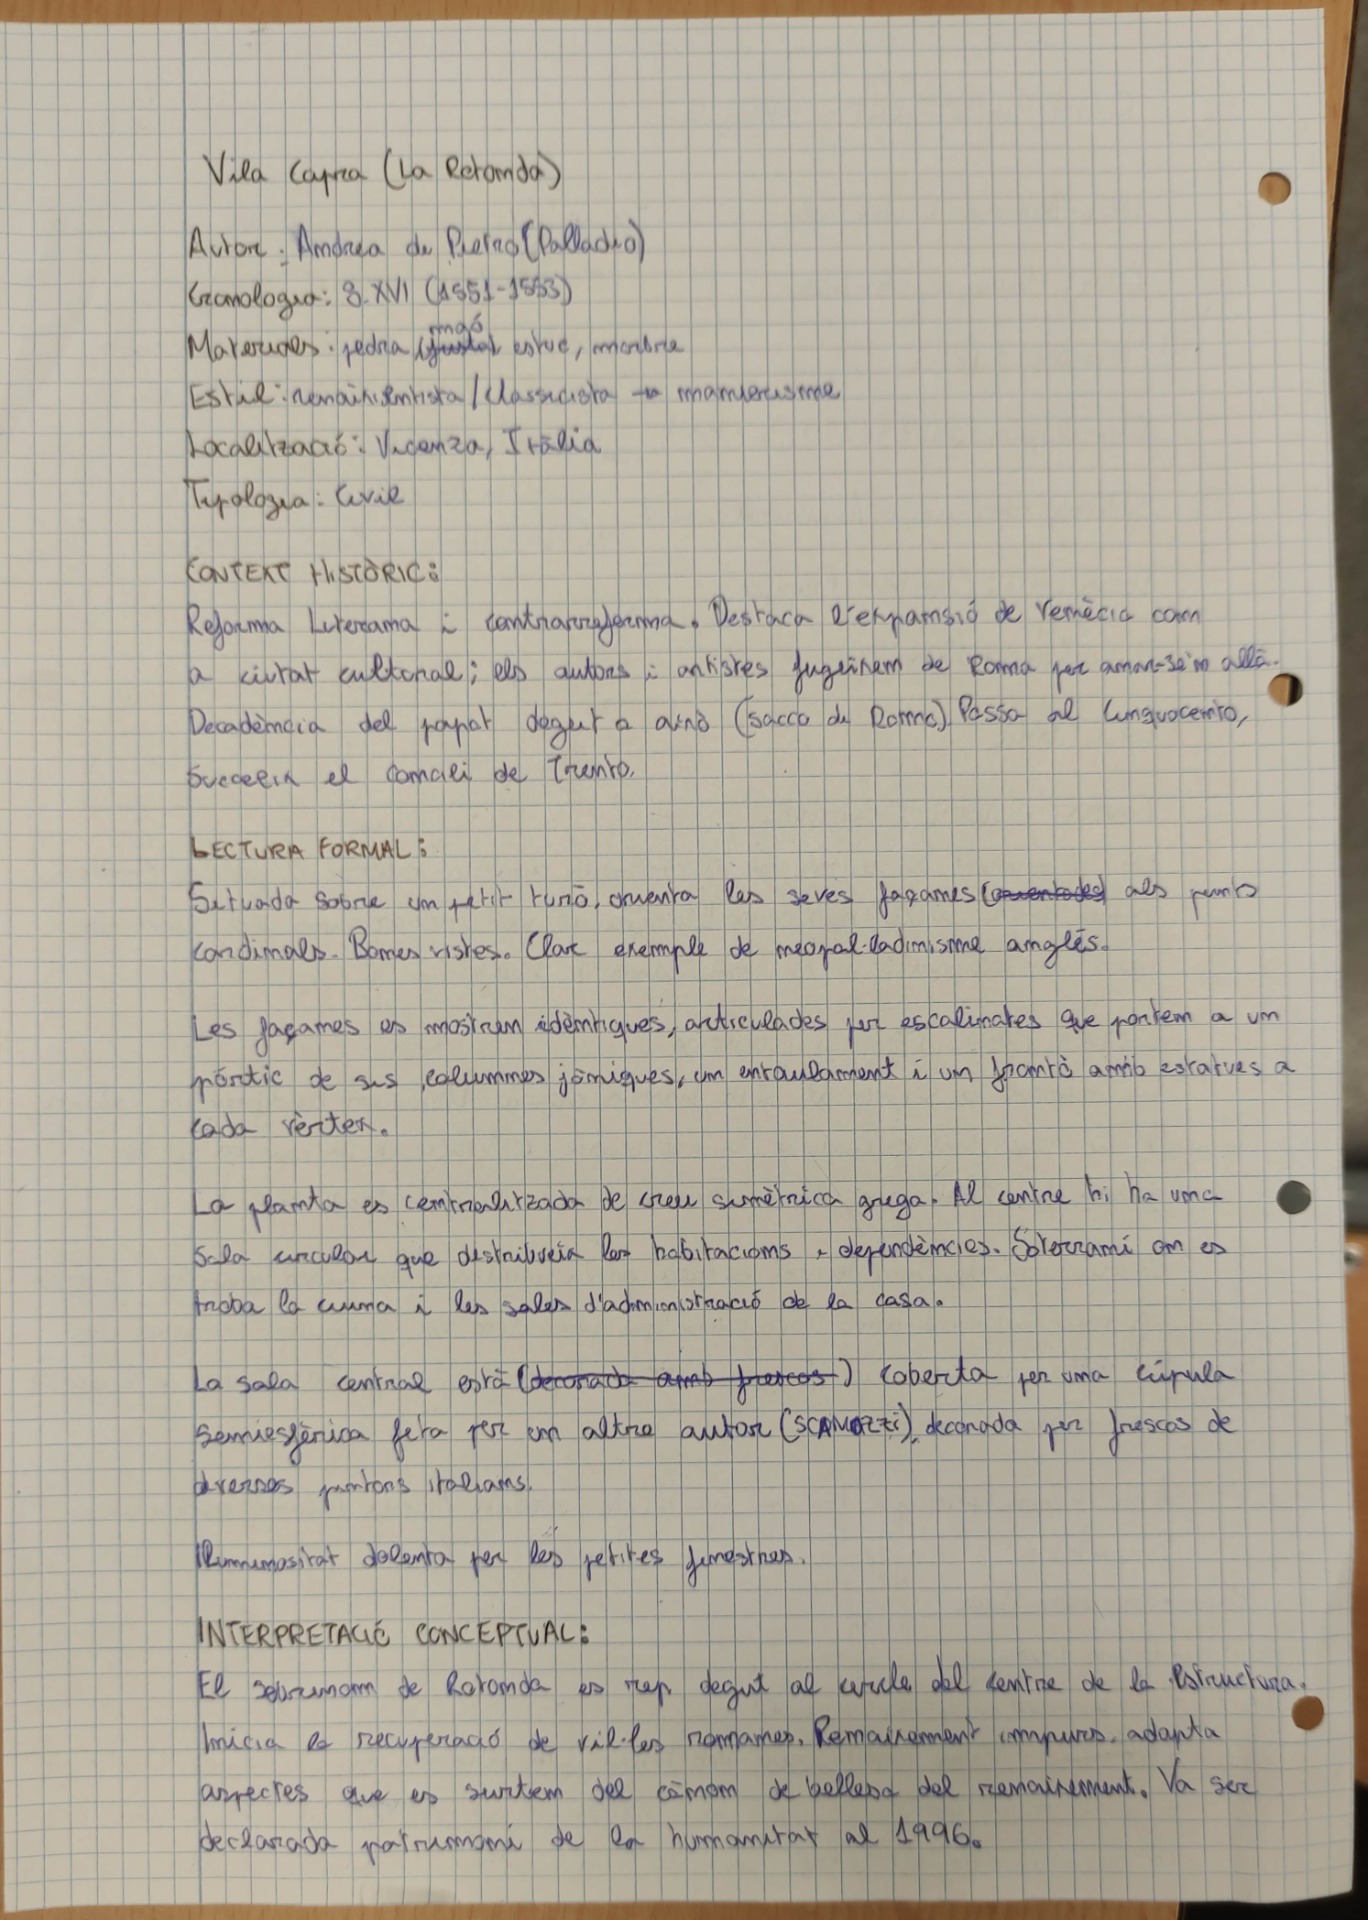 Vila Capra (La Rotonda)
Autor: Andrea de Pietro (Palladio)
Cronologia: S. XVI (1551-1553)
Materials: pedra, maó, estuc, marbre
Estil: renaixentista / classicista → manierisme
Localització: Vicenza, Itàlia
Tipologia: Civil
CONTEXT HISTÒRIC:
Reforma Luterana i contrarreforma. Destaca l'expansió de Venècia com
a ciutat cultural; els autors i artistes fugeixen de Roma per anar-se'n allà.
Decadència del papat degut a això (sacco di Roma). Passa al Cinquocento,
succeeix el concili de Trento.
LECTURA FORMAL:
Situada sobre un petit turó, orienta les seves façanes (orientades) als punts
cardinals. Bones vistes. Clar exemple de neopal·ladinisme anglès.
Les façanes es mostren idèntiques, articulades per escalinates que porten a un
pòrtic de sis columnes jòniques, un entaulament i un frontó amb estatues a
cada vèrtex.
La planta es centralitzada de creu simètrica grega. Al centre hi ha una
sala circular que distribueix les habitacions i dependències. Soterrani on es
troba la cuina i les sales d'administració de la casa.
La sala central està (decorada amb frescos) coberta per una cúpula
semiesfèrica feta per un altre autor (SCAMOZZI), decorada per frescos de
diversos pintors italians.
Il·luminositat dolenta per les petites finestres.
INTERPRETACIÓ CONCEPTUAL:
El sobrenom de Rotonda es rep degut al cercle del centre de la estructura.
Inicia la recuperació de vil·les romanes. Renaixement impur, adapta
aspectes que es surten del cànon de bellesa del renaixement. Va ser
declarada patrimoni de la humanitat al 1996.